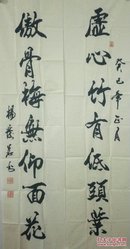 癸巳年正月
虛心竹有低頭葉
傲骨梅無仰面花